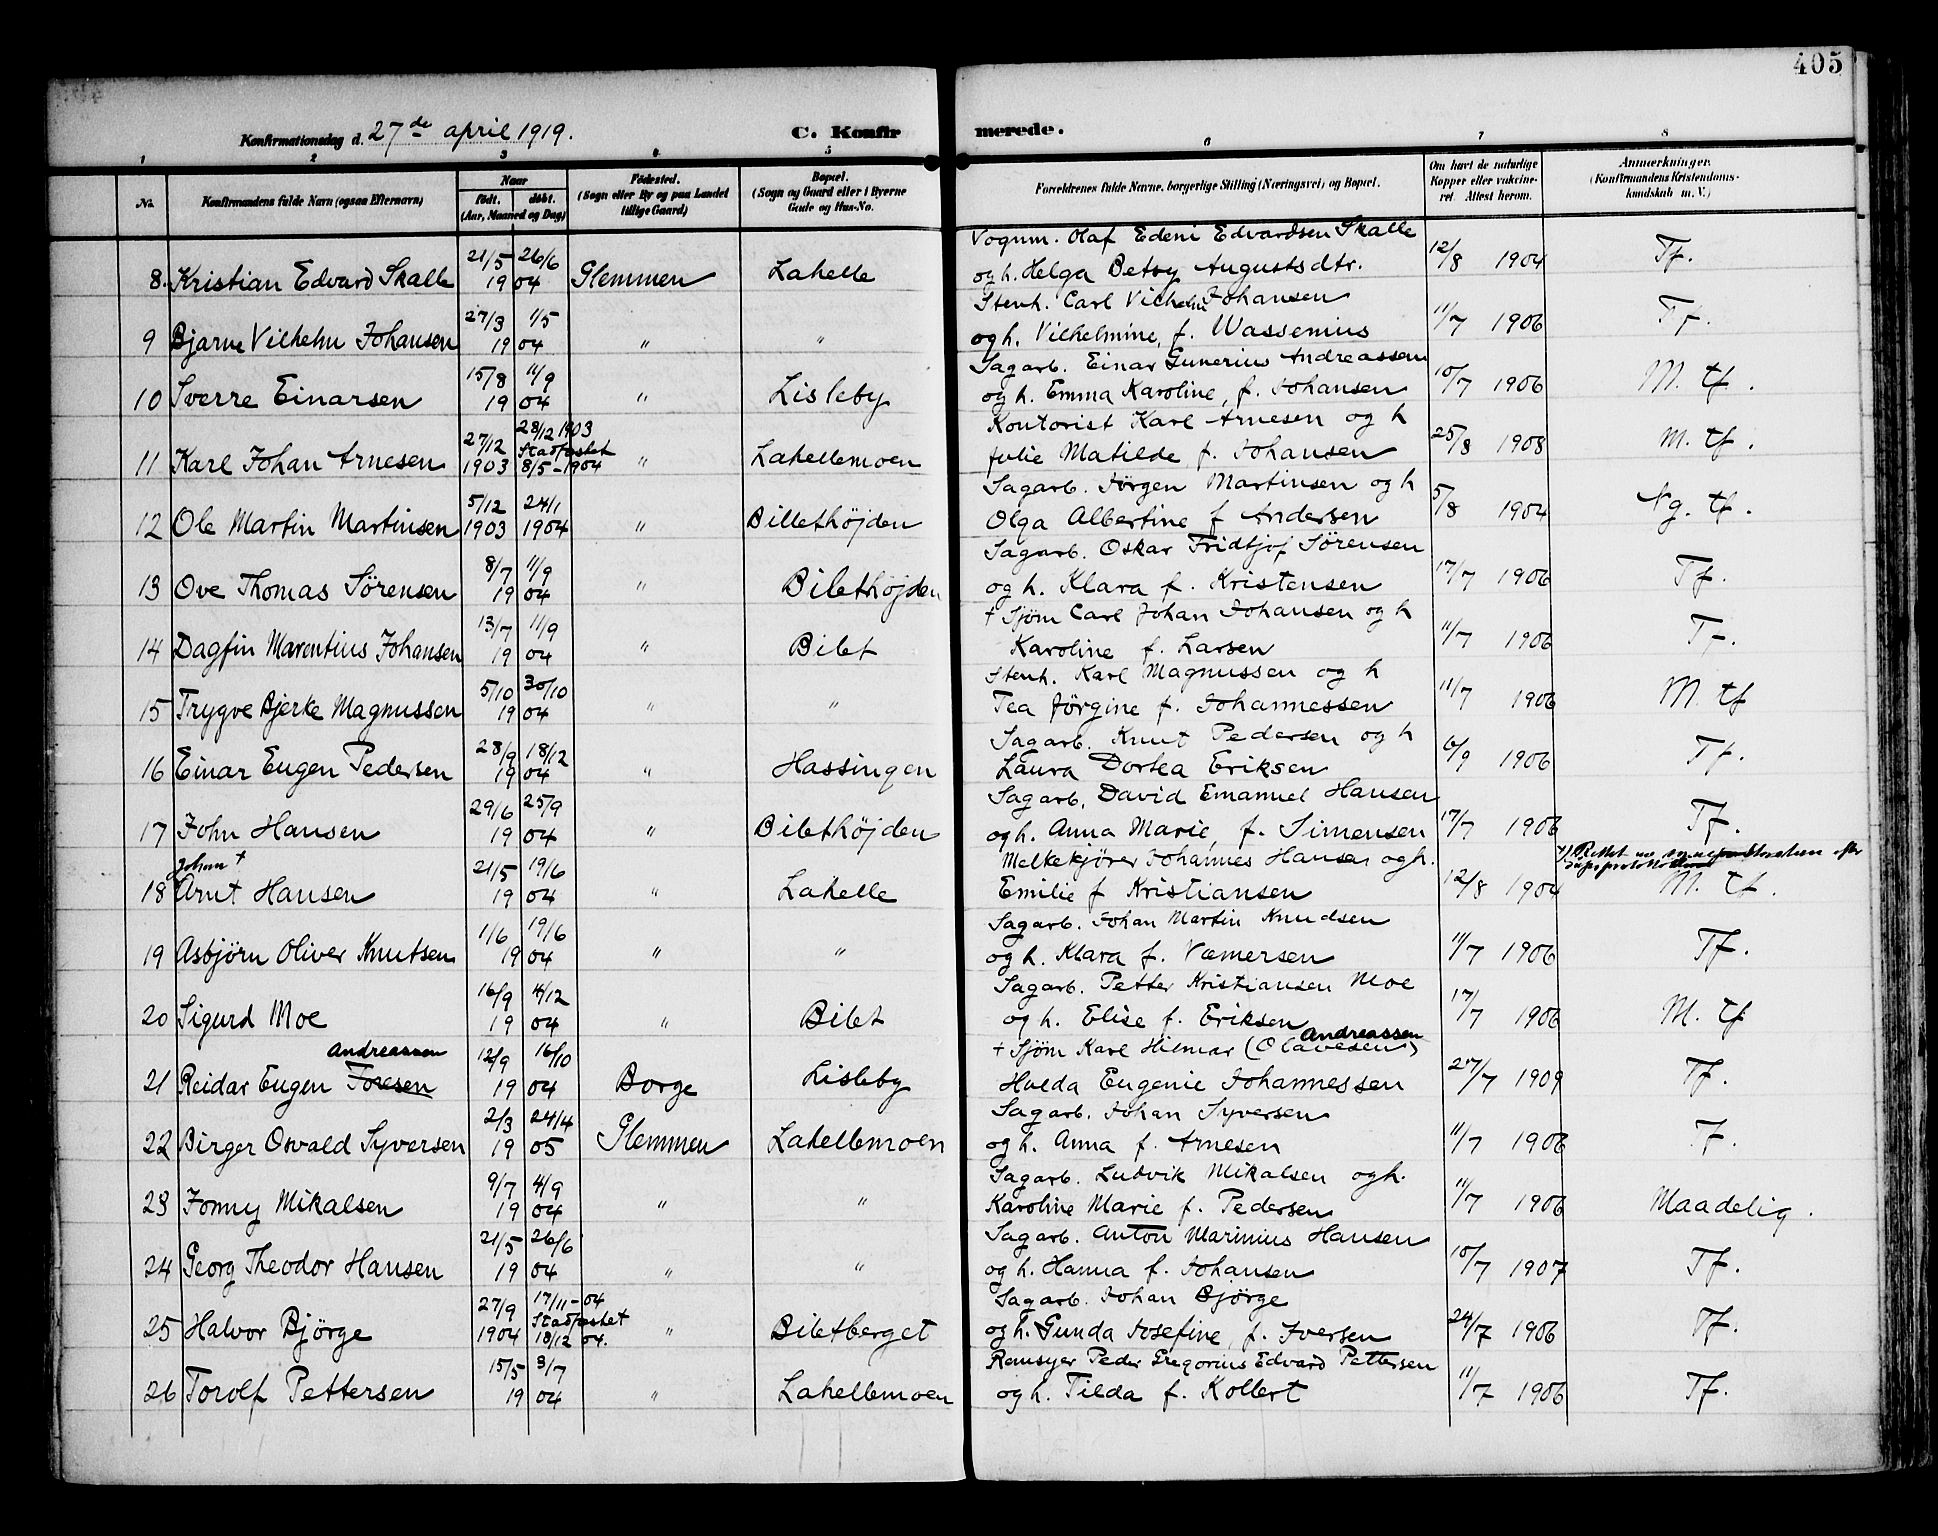 405
Konfirmationsdag d. 27de april 1919. C. Konfirmerede.
1 2 3 4 5 6 7 8
No. Konfirmandens fulde Navn (ogsaa Efternavn) Naar født. døbt. (Aar, Maaned og Dag) Fødested. (Sogn eller By og paa Landet tillige Gaard) Bopæl. (Sogn og Gaard eller i Byerne Gade og Hus-No. Forældrenes fulde Navne, borgerlige Stilling (Næringsvei) og Bopæl. Om havt de naturlige Kopper eller vaccineret. Attest herom. Anmærkninger. (Konfirmandens Kristendomskundskab m. V.)
21/5 26/6 Vognm. Olaf Edeni Edvardsen Skalle
8. Kristian Edvard Skalle 19 04 Glemmen Lahelle og h. Helga Betsy Augustsdtr. 12/8 1904 Tf.
27/3 1/5 Stenh. Carl Vilhelm Johansen
9 Bjarne Vilhelm Johansen 19 04 " " og h. Vilhelmine, f. Wassenius 11/7 1906 Tf.
15/8 11/9 Sagarb. Einar Gunerius Andreassen
10 Sverre Einarsen 19 04 " Lisleby og h. Emma Karoline, f. Johansen 10/7 1906 M. tf.
27/12 28/12 1903 Stadfæstet Kontorist Karl Arnesen og h
11 Karl Johan Arnesen 1903 8/5-1904 " Lahellemoen Julie Matilde f. Johansen 25/8 1908 M. tf.
5/12 24/1 Sagarb. Jørgen Martinsen og h
12 Ole Martin Martinsen 1903 1904 " Billethöjden Olga Albertine f Andersen 5/8 1904 Ng. tf.
8/7 11/9 Sagarb. Oskar Fridtjof Sörensen
13 Ove Thomas Sörensen 19 04 " Bilethöjden og h. Klara f. Kristensen 17/7 1906 Tf.
13/7 11/9 + Sjöm Carl Johan Johansen og h
14 Dagfin Marentius Johansen 19 04 " Bilet Karoline f. Larsen 11/7 1906 Tf.
5/10 30/10 Stenh. Karl Magnussen og h
15 Trygve Bjerke Magnussen 19 04 " " Tea Jørgine f. Johannessen 11/7 1906 M. tf
28/9 18/12 Sagarb. Knut Pedersen og h
16 Einar Eugen Pedersen 19 04 " Hassingen Laura Dortea Eriksen 6/9 1906 Tf.
29/6 25/9 Sagarb. David Emanuel Hansen
17 John Hansen 19 04 " Bilethöjden og h. Anna Marie, f. Simensen 17/7 1906 Tf.
Johan + 21/5 19/6 Melkekjører Johannes Hansen og h. +) Rettet efter
18 Arnt Hansen 19 04 " Lahelle Emilie f Kristiansen 12/8 1904 M. tf.
1/6 19/6 Sagarb. Johan Martin Knudsen
19 Asbjørn Oliver Knutsen 19 04 " " og h. Klara f. Væmersen 11/7 1906 Tf.
16/9 4/12 Sagarb. Petter Kristiansen Moe
20 Sigurd Moe 19 04 " Bilet og h. Elise f. Eriksen 17/7 1906 M. tf
Andreassen 12/9 16/10 + Sjøm Karl Hilmar (Olavesen) Andreassen
21 Reidar Eugen Foresen 19 04 Borge Lisleby Hulda Eugenie Johannessen 27/7 1909 Tf.
2/3 24/4 Sagarb. Johan Syversen
22 Birger Osvald Syversen 19 05 Glemmen Lahellemoen og h. Anna f. Arnesen 11/7 1906 Tf.
9/7 4/9 Sagarb. Ludvik Mikalsen og h.
23 Jonny Mikalsen 19 04 " " Karoline Marie f. Pedersen 11/7 1906 Maadelig.
21/5 26/6 Sagarb. Anton Marinius Hansen
24 Georg Theodor Hansen 19 04 " " og h. Hanna f. Johansen 10/7 1907 Tf.
27/9 17/11-04 Stadfæstet Sagarb. Johan Bjørge
25 Halvor Bjørge 1904 18/12 04. " Biletberget og h. Gunda Josefine, f. Iversen 24/7 1906 Tf.
15/5 3/7 Remsyer Peder Gregorius Edvard Pettersen
26 Torolf Pettersen 19 04 " Lahellemoen og h. Tilda f. Kollert 11/7 1906 Tf.